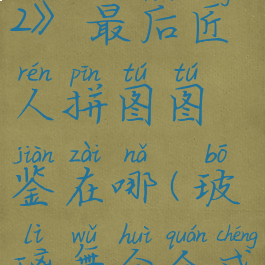 2》最后匠
rén pīn tú tú
人拼图图
jiàn zài nǎ bō
鉴在哪(玻
lí wǔ huì quán chéng